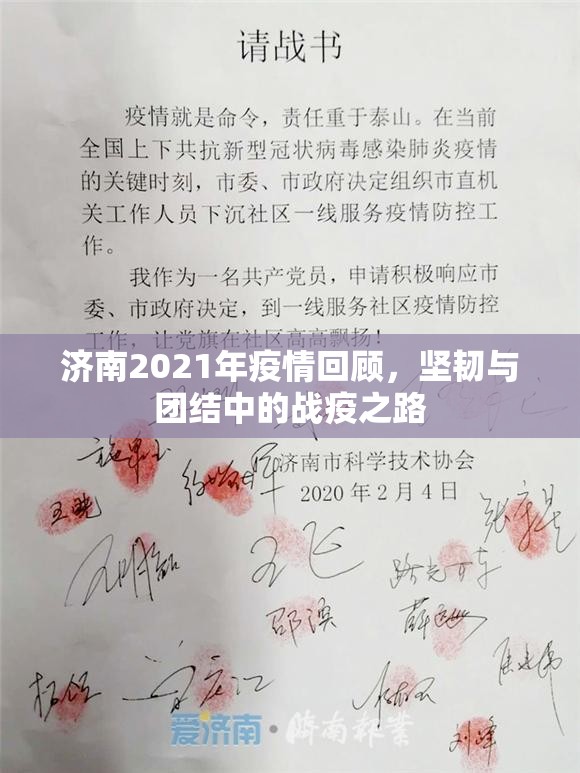 请战书
疫情就是命令，责任重于泰山。在当前
全国上下共抗新型冠状病毒感染肺炎疫情
的关键时刻，市委、市政府决定组织市直机
关工作人员下沉社区一线服务疫情防控工
作。
我作为一名共产党员，申请积极响应市
委、市政府决定，到一线服务社区疫情防控
工作，让党旗在社区高高飘扬！
济南2021年疫情回顾，坚韧与
团结中的战疫之路
济南市科学技术协会
2020年2月4日
王晓
王飞
邵溟
刘峰
爱济南·济南报业